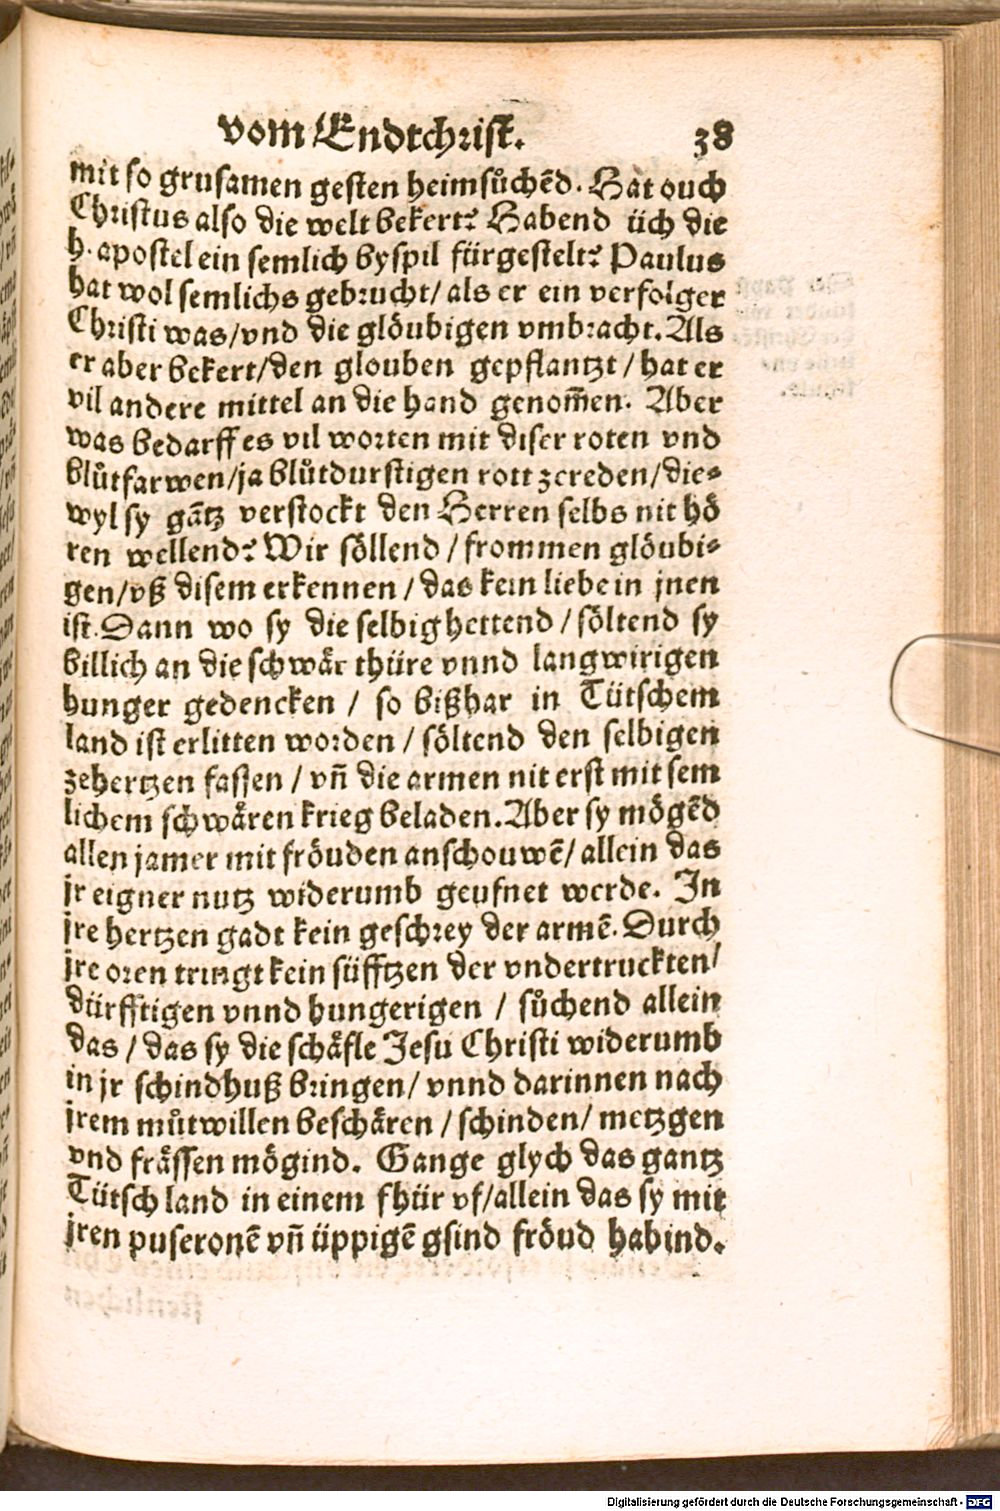 vom Endtchrist. 38
mit so grusamen gesten heimsůchẽd. Hat ouch
Christus also die welt bekert? Habend üch die
h. apostel ein semlich byspil fürgestelt? Paulus
hat wol semlichs gebrucht/ als er ein verfolger
Christi was/vnd die glöubigen vmbracht. Als
er aber bekert/den glouben gepflantzt / hat er
vil andere mittel an die hand genom̃en. Aber
was bedarff es vil worten mit diser roten vnd
blůtfarwen/ja blůtdurstigen rott zereden/die⸗
wyl sy gãtz verstockt den Herren selbs nit hö
ren wellend? Wir söllend / frommen glöubi⸗
gen/vß disem erkennen / das kein liebe in jnen
ist. Dann wo sy die selbig hettend / söltend sy
billich an die schwåre thüre vnnd langwirigen
hunger gedencken / so bißhar in Tütschem
land ist erlitten worden / söltend den selbigen
zehertzen fassen / vñ die armen nit erst mit sem
lichem schwåren krieg beladen. Aber sy mögẽd
allen jamer mit fröuden anschouwẽ/ allein das
jr eigner nutz widerumb geufnet werde. In
jre hertzen gadt kein geschrey der armẽ. Durch
jre oren tringt kein süfftzen der vndertruckten/
dürfftigen vnnd hungerigen / sůchend allein
das / das sy die schåfle Jesu Christi widerumb
in jr schindhuß bringen/ vnnd darinnen nach
jrem můtwillen beschåren / schinden/ metzgen
vnd fråssen mögind. Gange glych das gantz
Tütsch land in einem fhür vf/allein das sy mit
jren puseronẽ vñ üppigẽ gsind fröud habind.
Digitalisierung gefördert durch die Deutsche Forschungsgemeinschaft - DFG